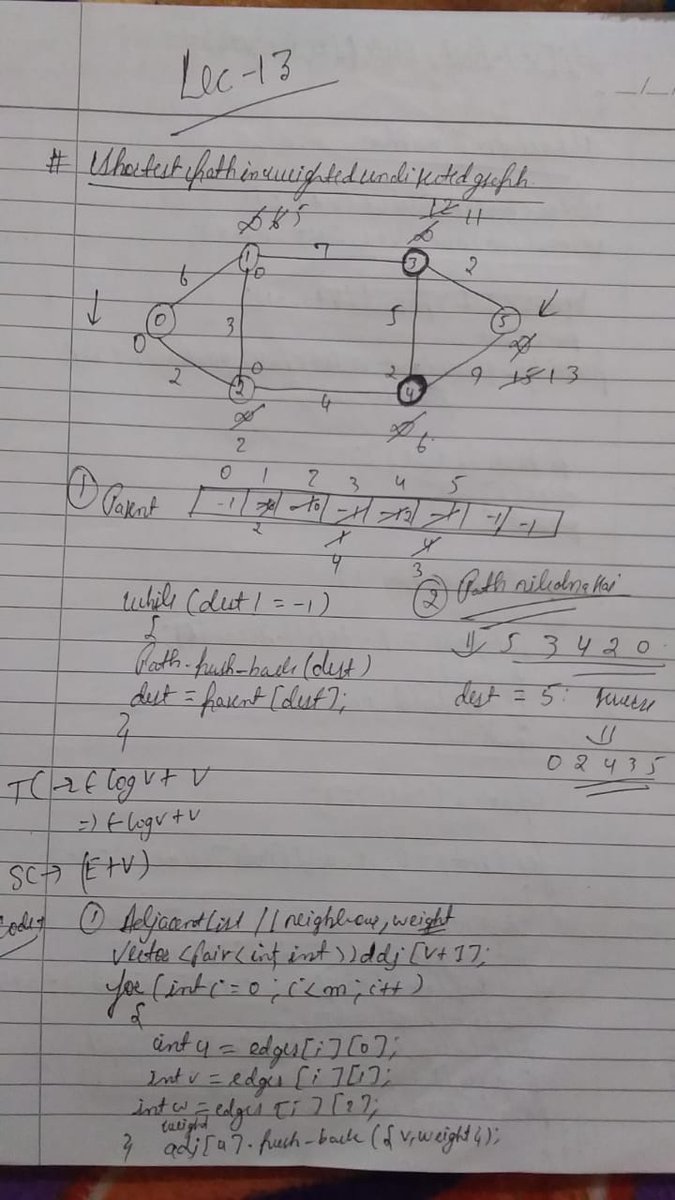 Lec-13
# Shortest path in weighted undirected graph
∞ 8 5
12 11
∞
1 7 3
6 0 2
0 3 5 5
0 0 2 ∞
2 2 4 4 9 15 13
∞ ∞ 6
2
0 1 2 3 4 5
① Parent -1 -1 -1 -1 -1
2 4
4 3
while (dest != -1)
② Path nikalna hai
{
⇓ 5 3 4 2 0
Path.push-back(dest)
dest = parent[dest];
dest = 5: reverse
}
⇓
0 2 4 3 5
TC → E log V + V
=> E log V + V
SC → (E+V)
Code→ ① Adjacent list // neighbour, weight
vector <pair<int, int>> adj[V+1];
for (int i = 0; i<m; i++)
{
int u = edges[i][0];
int v = edges[i][1];
int w = edges[i][2];
weight
} adj[u].push-back({v, weight});